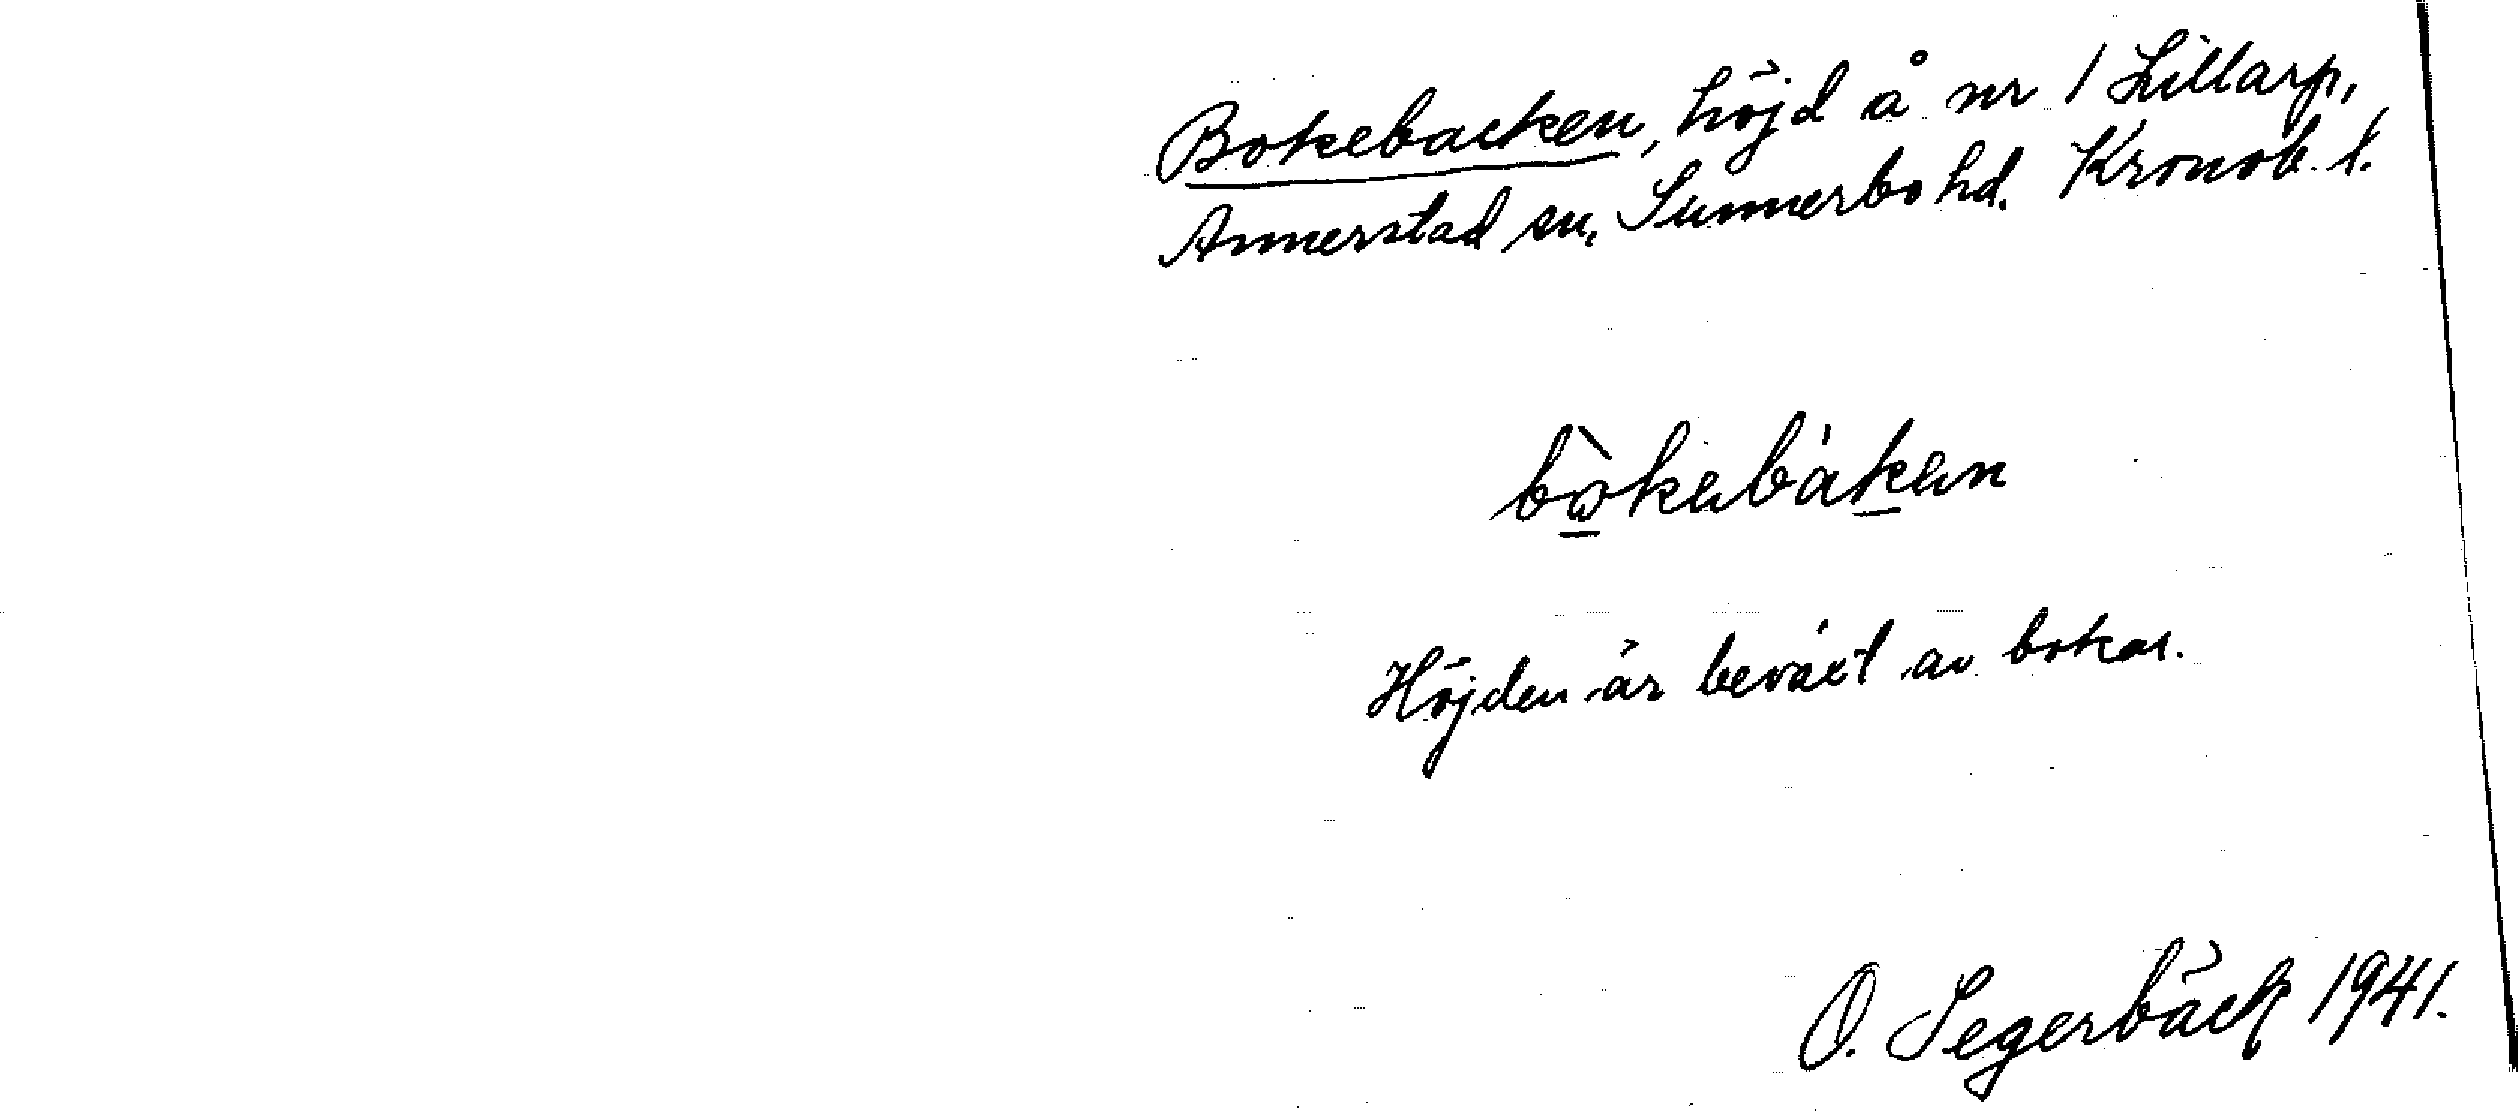 Bokebacken, höjd å nr 1 Lillarp,
Annerstad sn, Sunnerbo hd. Kronob. l.
bò̱kebáḵen
Höjden är beväxt av bokar.
O. Segerbäck 1941.